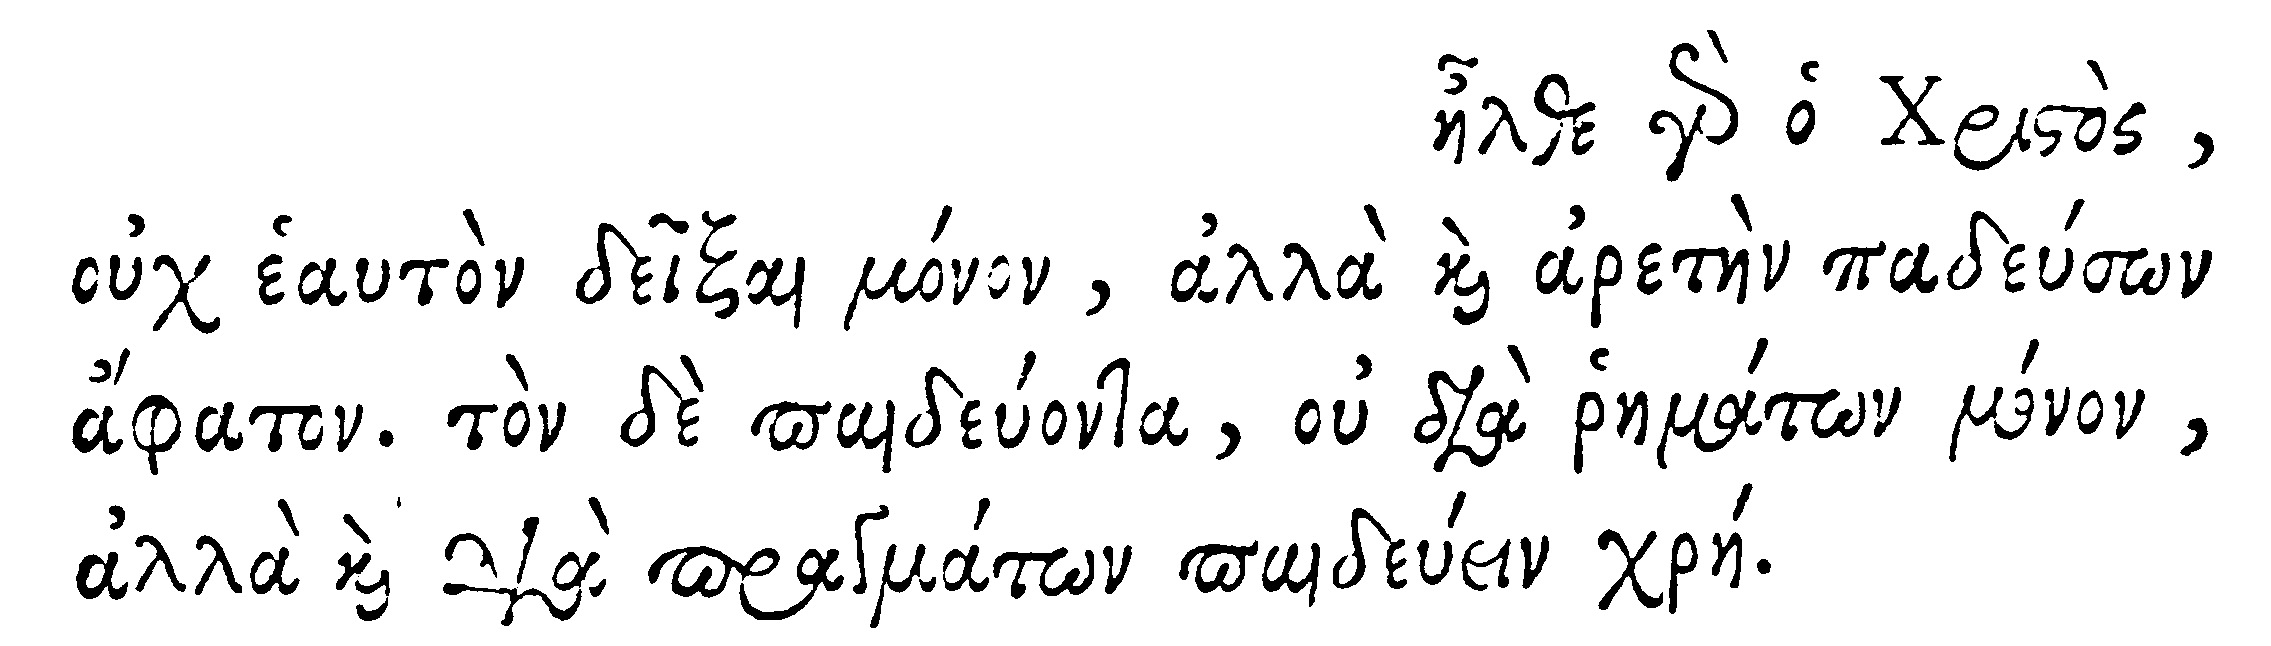 ἦλθε γὰρ ὁ Χριστὸς,
οὐχ ἑαυτὸν δεῖξαι μόνον, ἀλλὰ καὶ ἀρετὴν παδεύσων
ἄφατον. τὸν δὲ παιδεύοντα, οὐ διὰ ῥημάτων μόνον,
ἀλλὰ καὶ διὰ πραγμάτων παιδεύειν χρή.